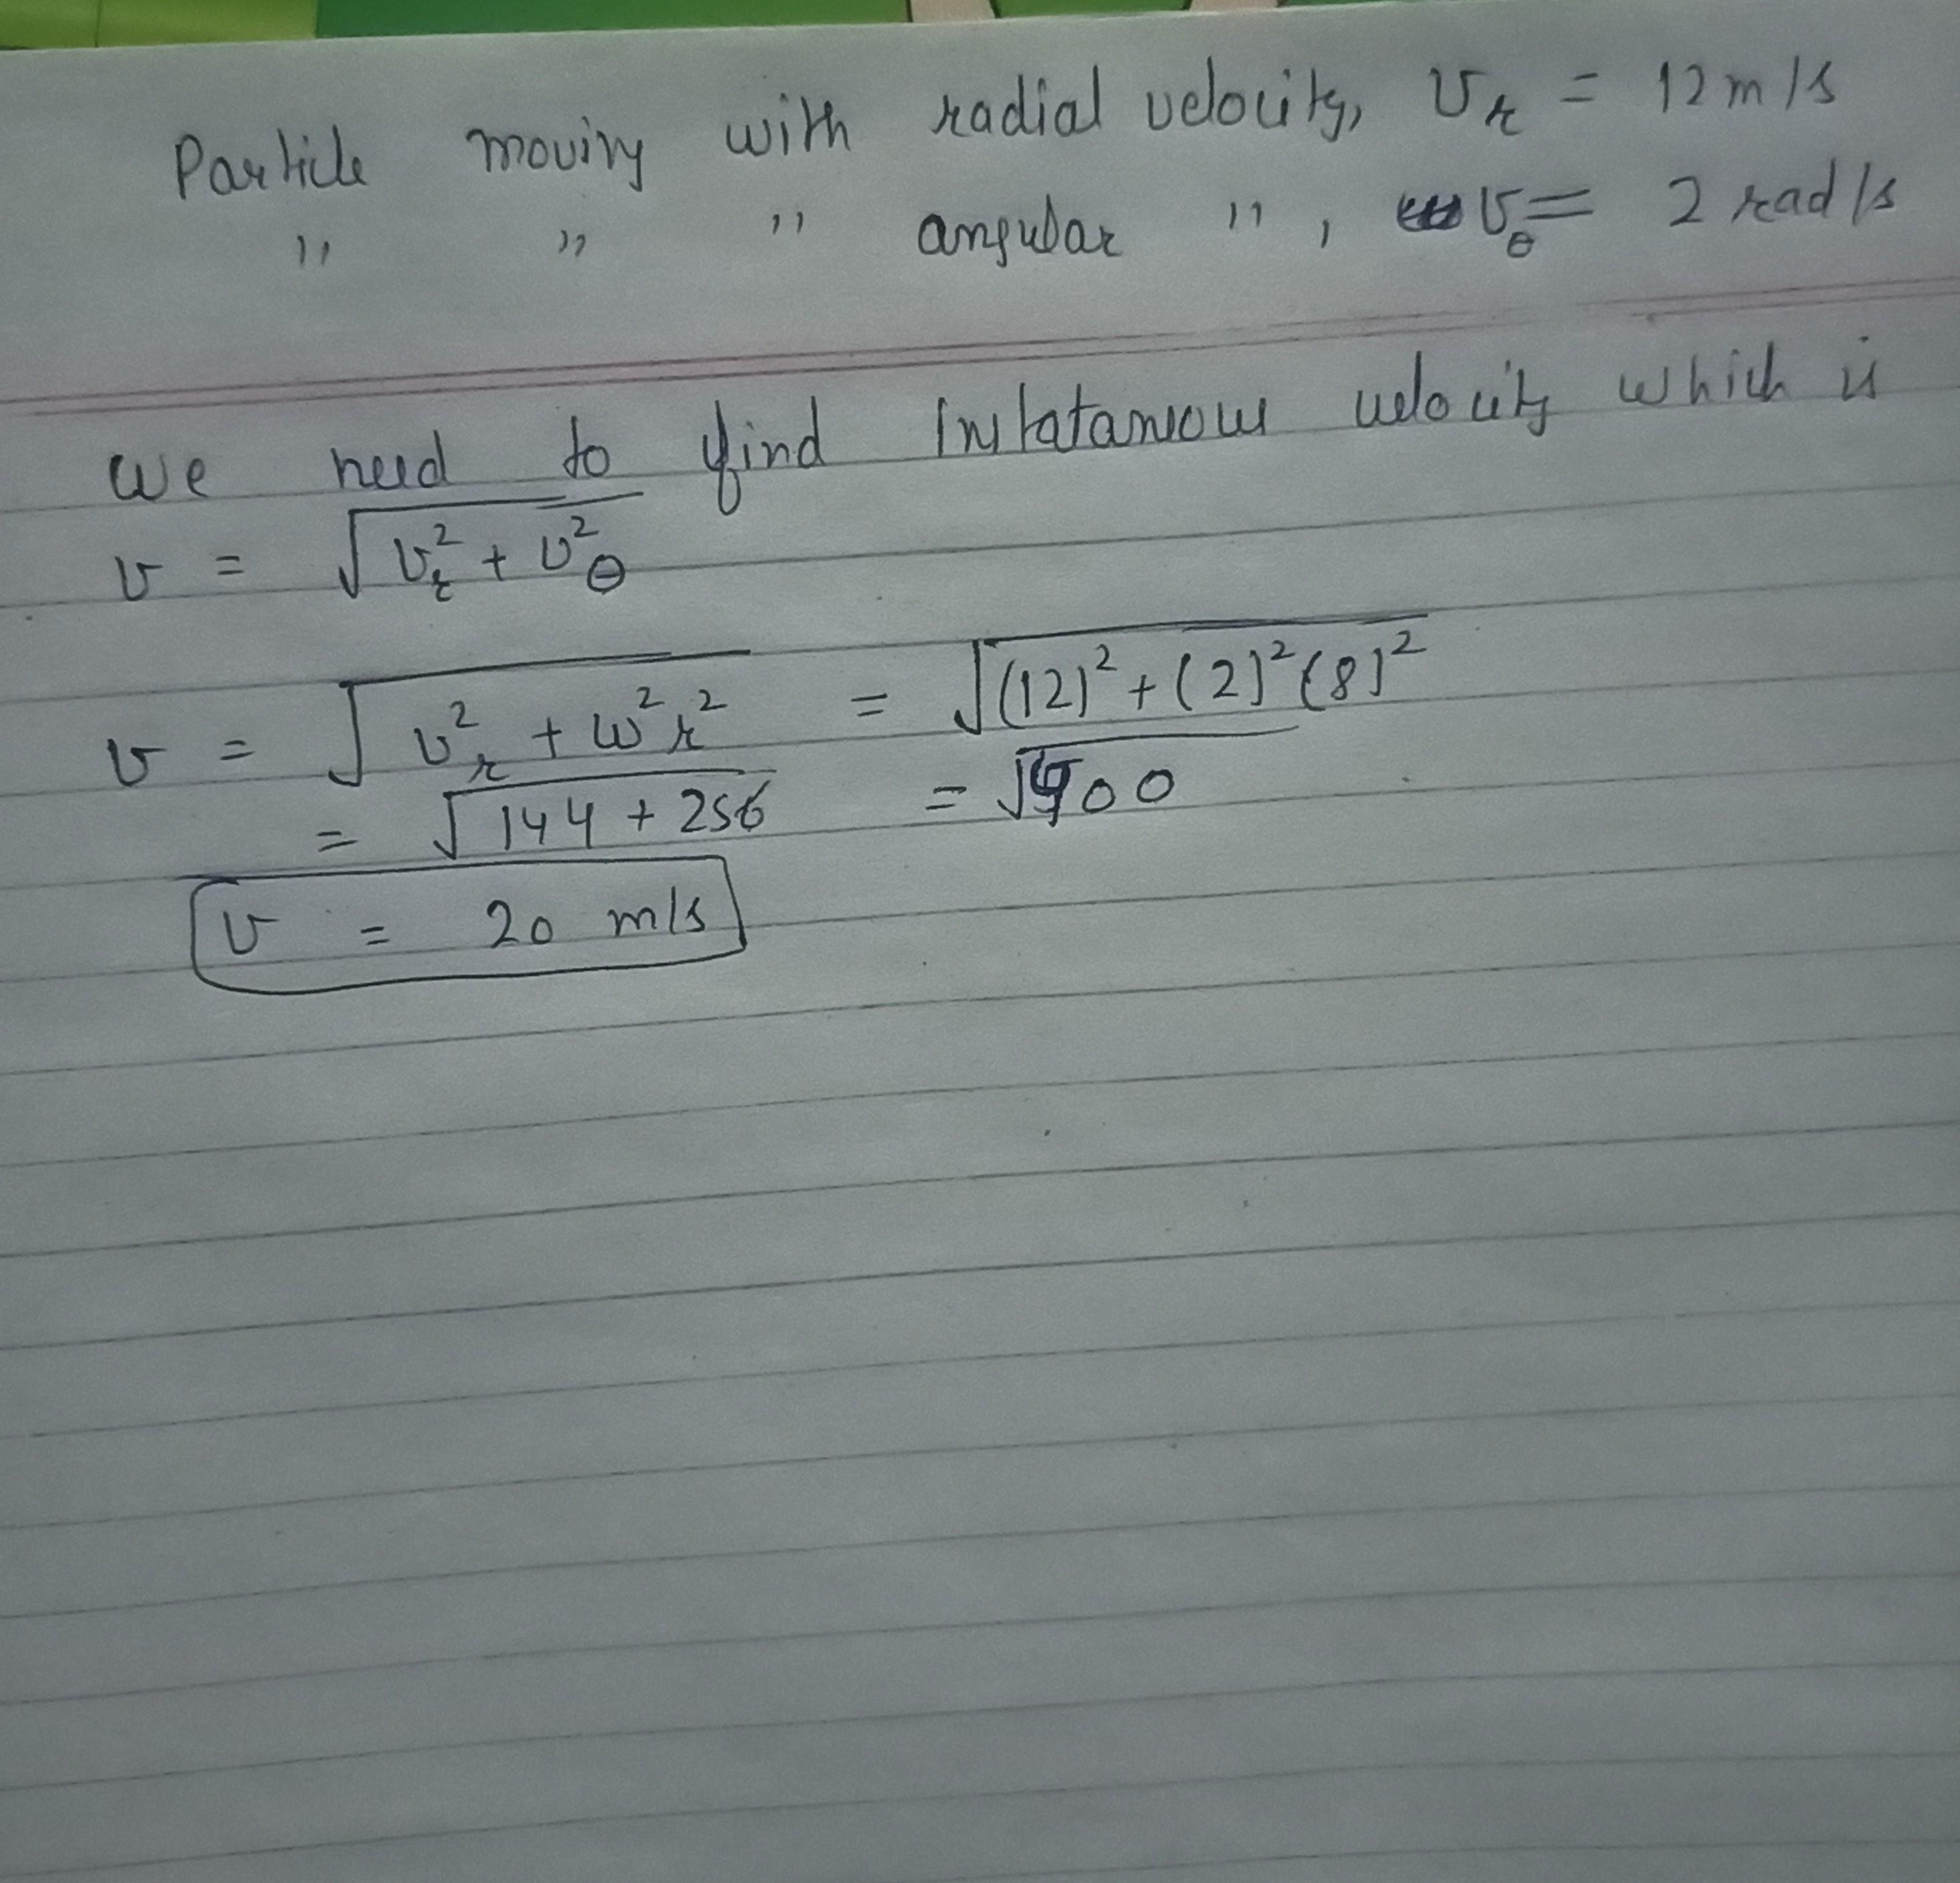 Particle moving with radial velocity, v_r = 12 m/s
" " " angular ", v_θ = 2 rad/s
We need to find Instataneous velocity which is
v = √(v_r² + v_θ²)
v = √(v_r² + ω²r²) = √((12)² + (2)²(8)²)
= √(144 + 256) = √400
v = 20 m/s